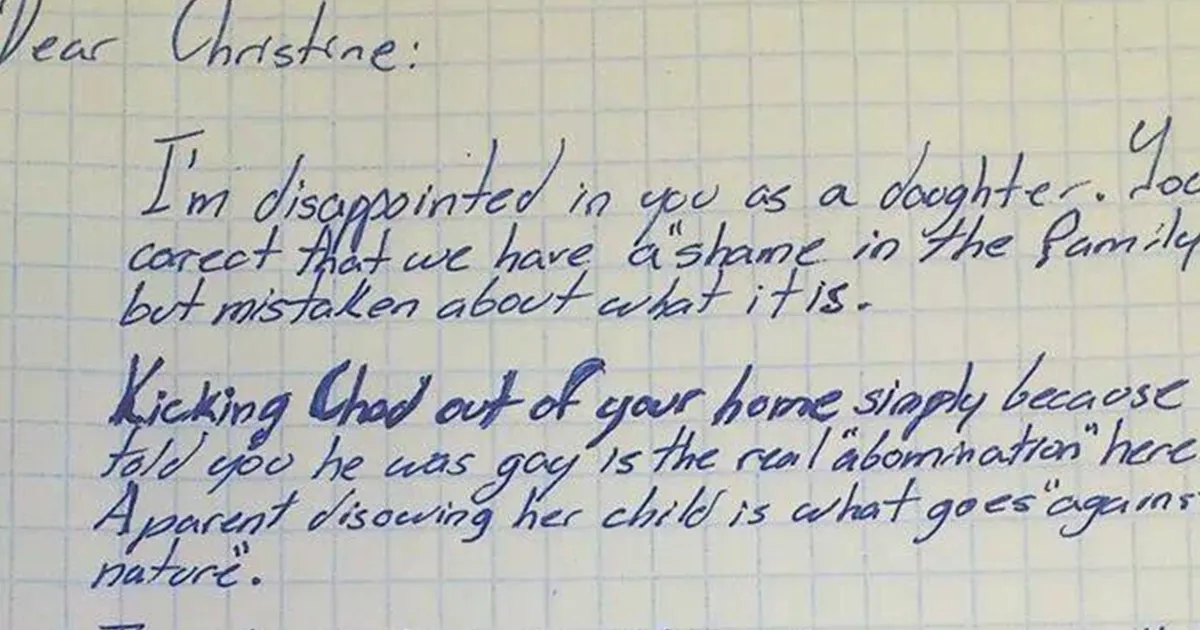 Dear Christine:
I'm disappointed in you as a daughter.
corect that we have a "shame in the family
but mistaken about what it is.
Kicking Chad out of your home simply because
told you he was gay is the real "abomination" here
A parent disowing her child is what goes "against
nature".